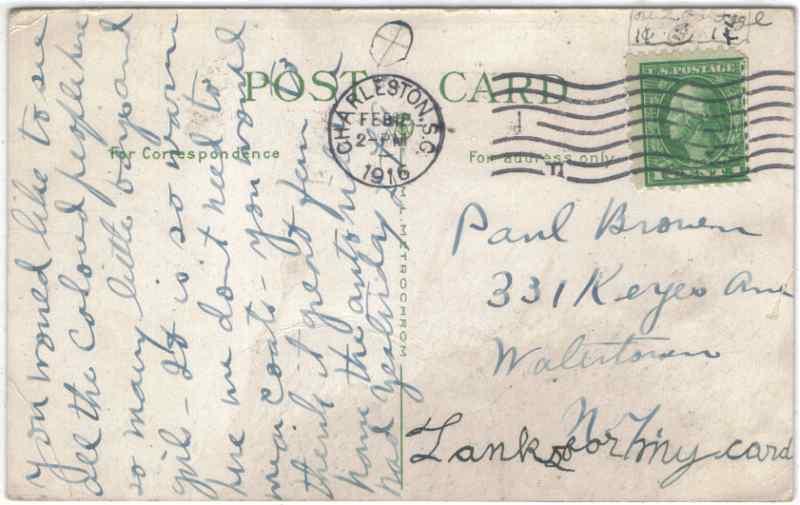 POST CARD
For Correspondence
For address only
CHARLESTON, S.C.
FEB 12
2-PM
1916
U.S. POSTAGE
METROCHROM
You would like to see
all the colored people here
so many little boys and
girls - It is so warm
here we don't need to
wear coats - You would
think it great fun
from the auto
had yesterday
Paul Brown
331 Keyes Ave
Watertown
N.Y.
Tanks for my card